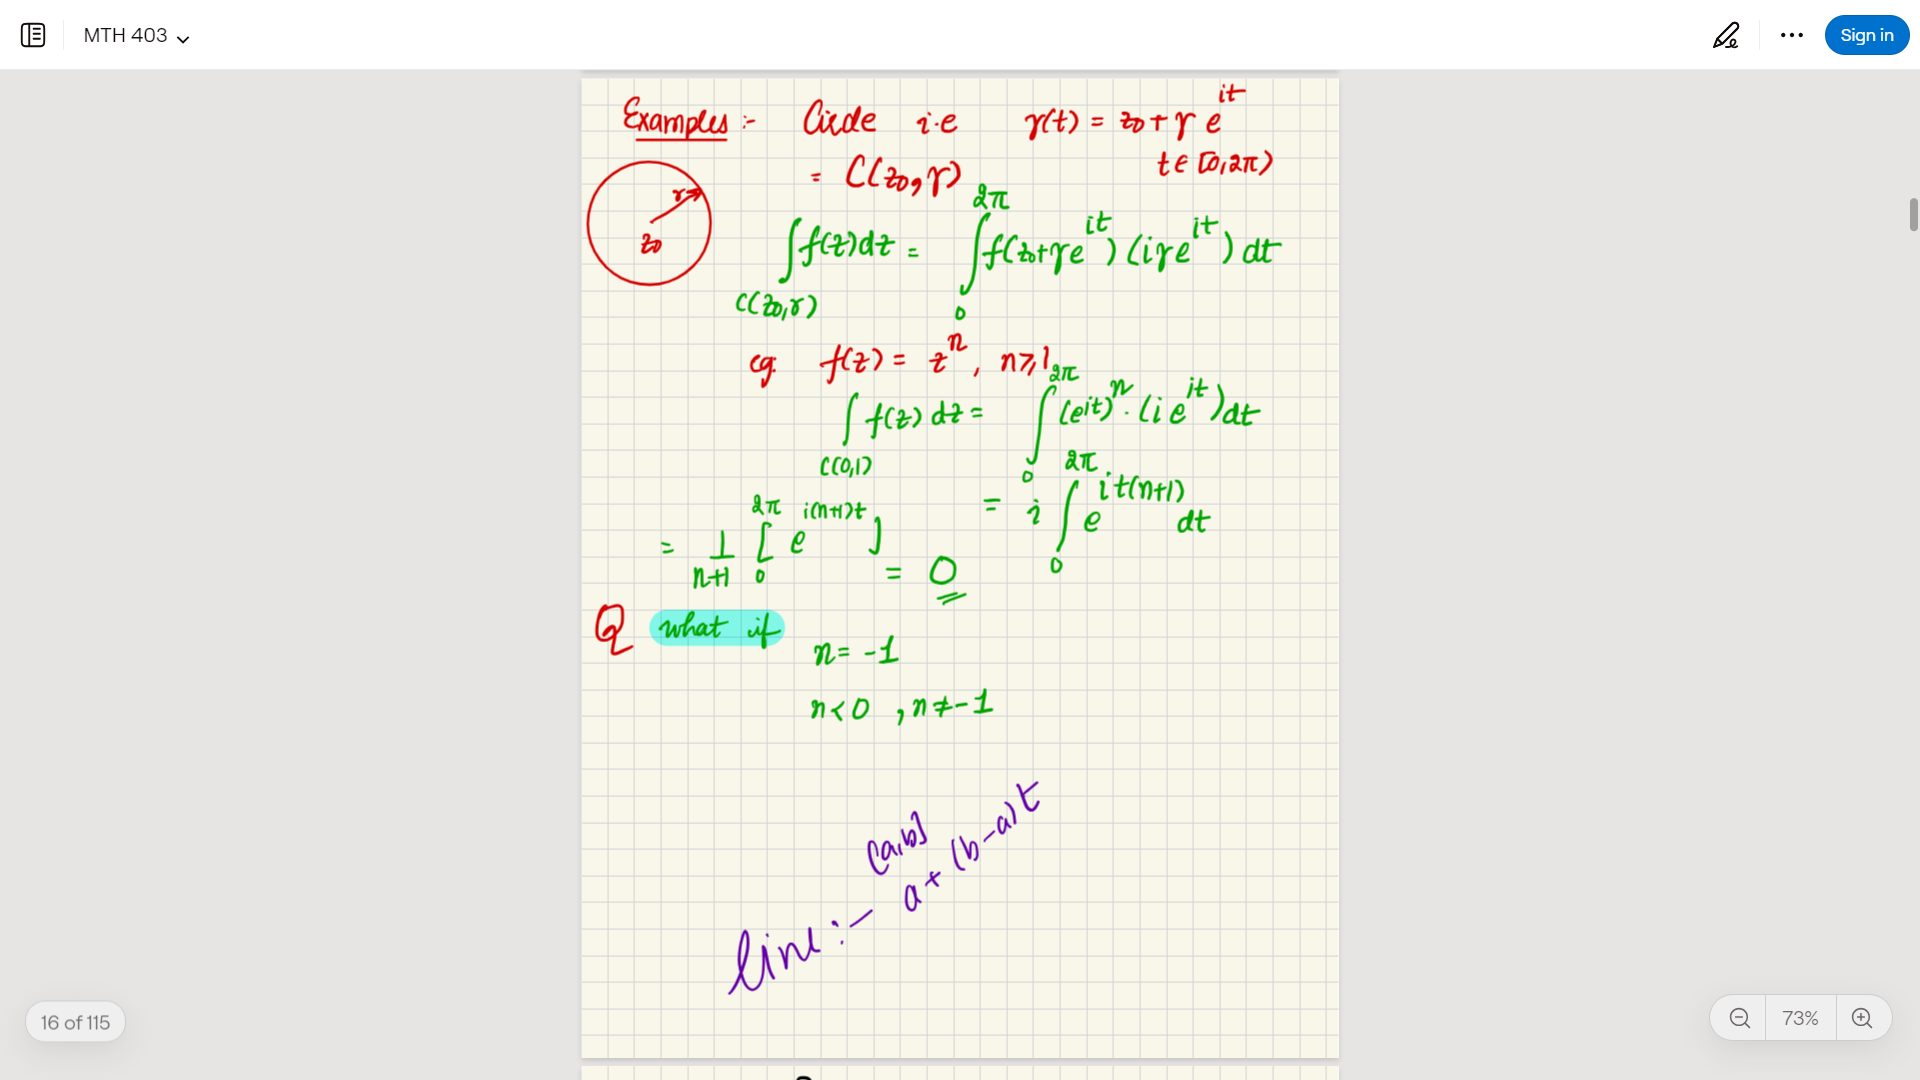 MTH 403
Sign in
Examples :- Circle i.e γ(t) = z₀ + r e^{it}
t ∈ [0, 2π)
= C(z₀, r)
r
z₀
∫_{C(z₀, r)} f(z) dz = ∫_0^{2π} f(z₀ + r e^{it}) (i r e^{it}) dt
eg. f(z) = z^n, n ≥ 1
∫_{C(0,1)} f(z) dz = ∫_0^{2π} (e^{it})^n · (i e^{it}) dt
= i ∫_0^{2π} e^{it(n+1)} dt
= 1/(n+1) [_0^{2π} e^{i(n+1)t} ] = 0
Q what if
n = -1
n < 0 , n ≠ -1
line :- [a, b]
a + (b - a) t
16 of 115
73%